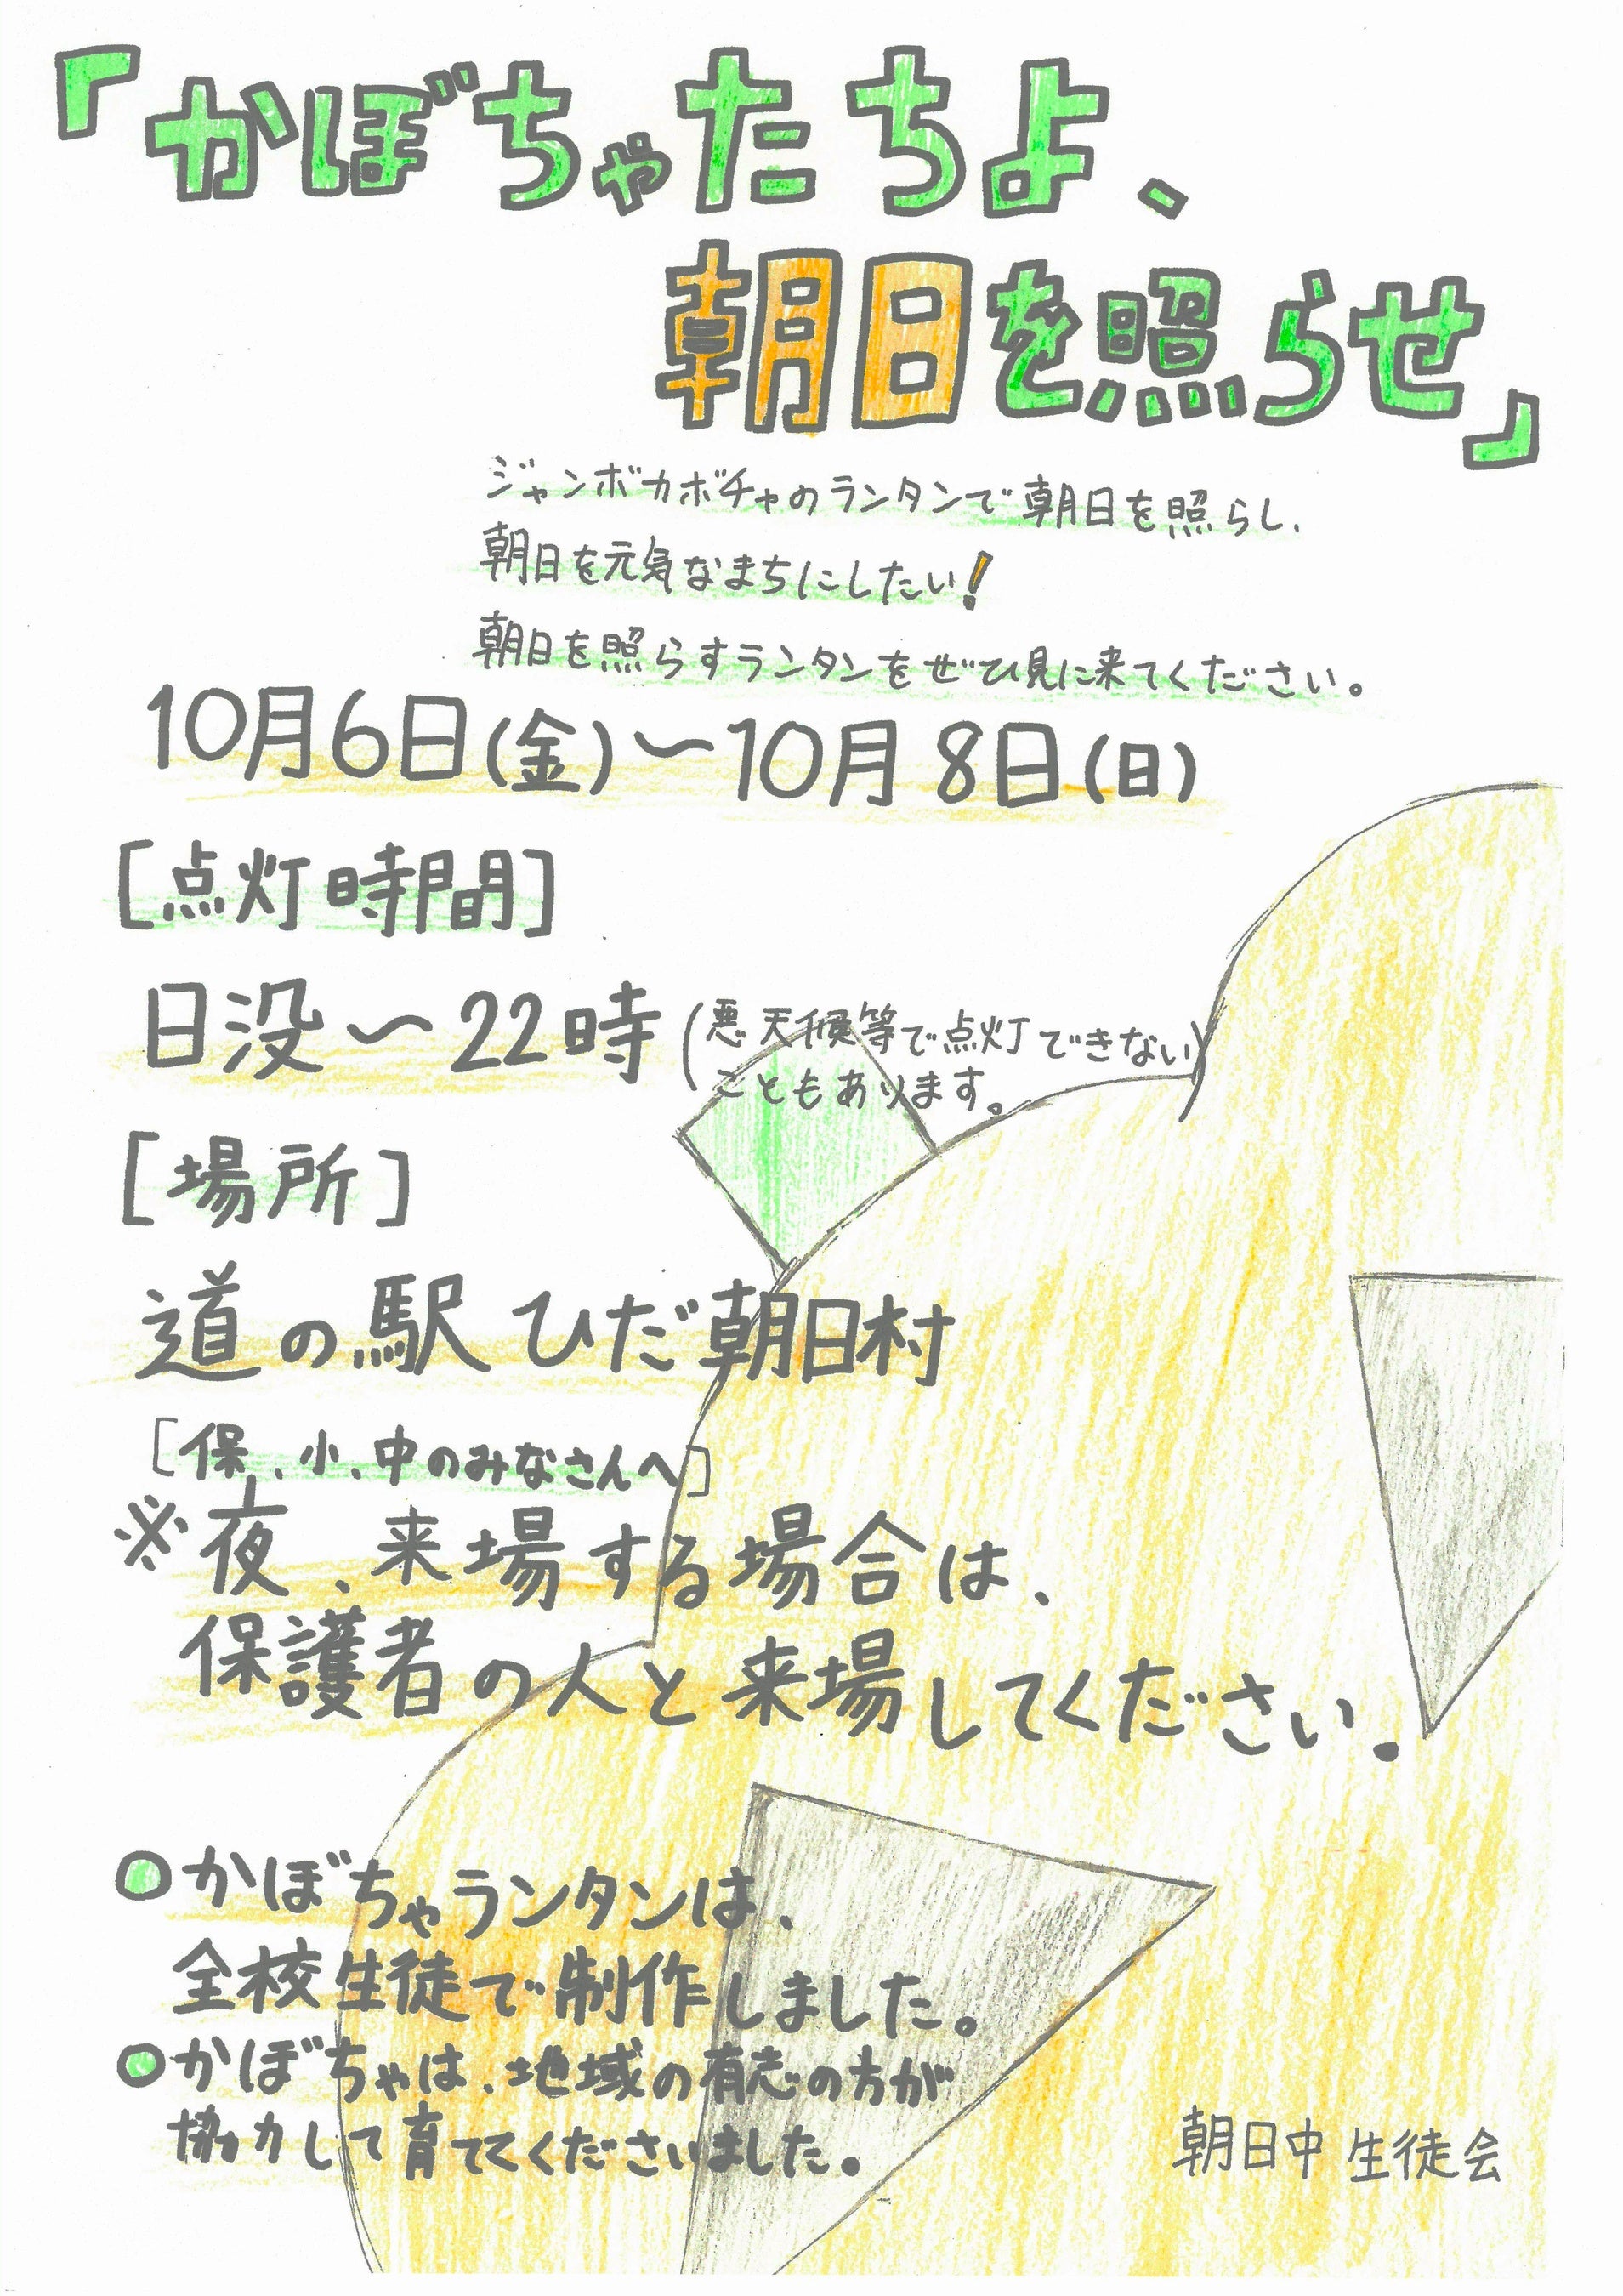 「かぼちゃたちよ、
朝日を照らせ」
ジャンボカボチャのランタンで朝日を照らし、
朝日を元気なまちにしたい!
朝日を照らすランタンをぜひ見に来てください。
10月6日(金)～10月8日(日)
[点灯時間]
日没～22時(悪天候等で点灯できない)
こともあります。
[場所]
道の駅 ひだ朝日村
[保、小、中のみなさんへ]
※夜、来場する場合は、
保護者の人と来場してください。
○かぼちゃランタンは、
全校生徒で制作しました。
○かぼちゃは、地域の有志の方が
協力して育ててくださいました。
朝日中 生徒会